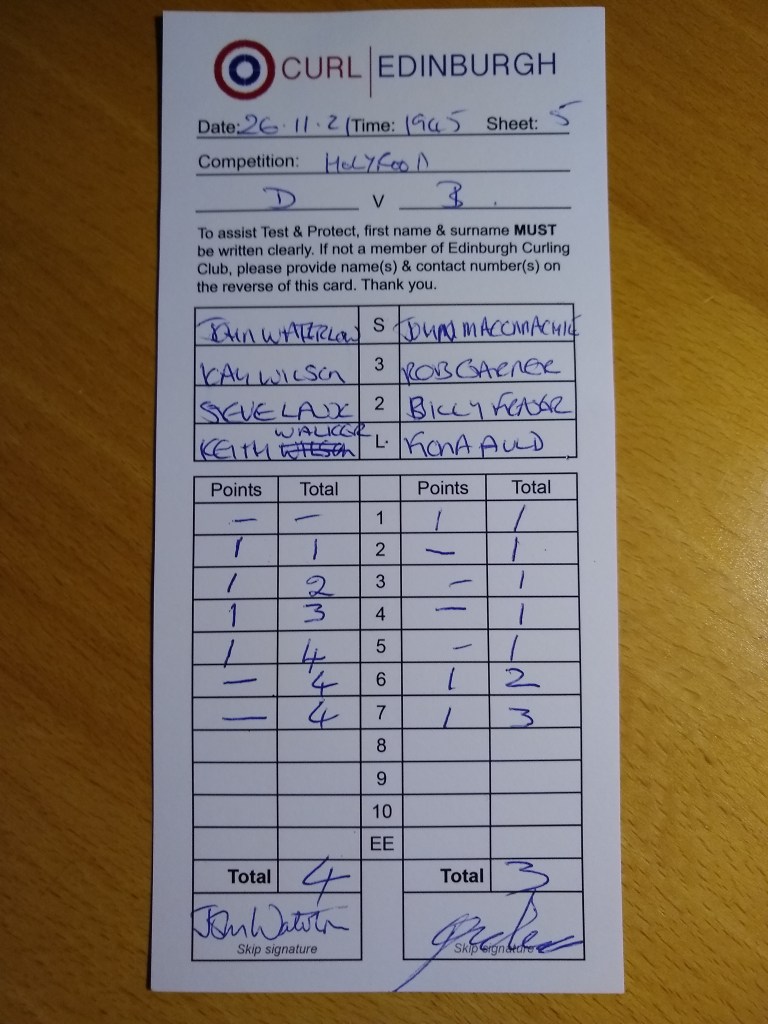 CURL | EDINBURGH
Date: 26.11.21 Time: 1945 Sheet: 5
Competition: HOLYROOD
D V B.
To assist Test & Protect, first name & surname MUST
be written clearly. If not a member of Edinburgh Curling
Club, please provide name(s) & contact number(s) on
the reverse of this card. Thank you.
JOHN WATERLOW S JOHN
KAY WILSON 3 ROB GARNER
STEVE 2 BILLY FRASER
WALKER
KEITH WILSON L. FIONA AULD
Points Total Points Total
— — 1 1 1
1 1 2 — 1
1 2 3 – 1
1 3 4 — 1
1 4 5 – 1
— 4 6 1 2
— 4 7 1 3
8
9
10
EE
Total 4 Total 3
Skip signature Skip signature